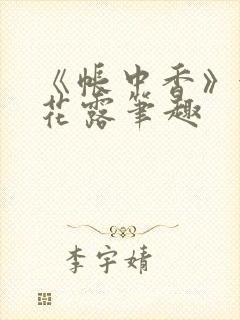 《帐中香》
花露笔趣
李宇婧